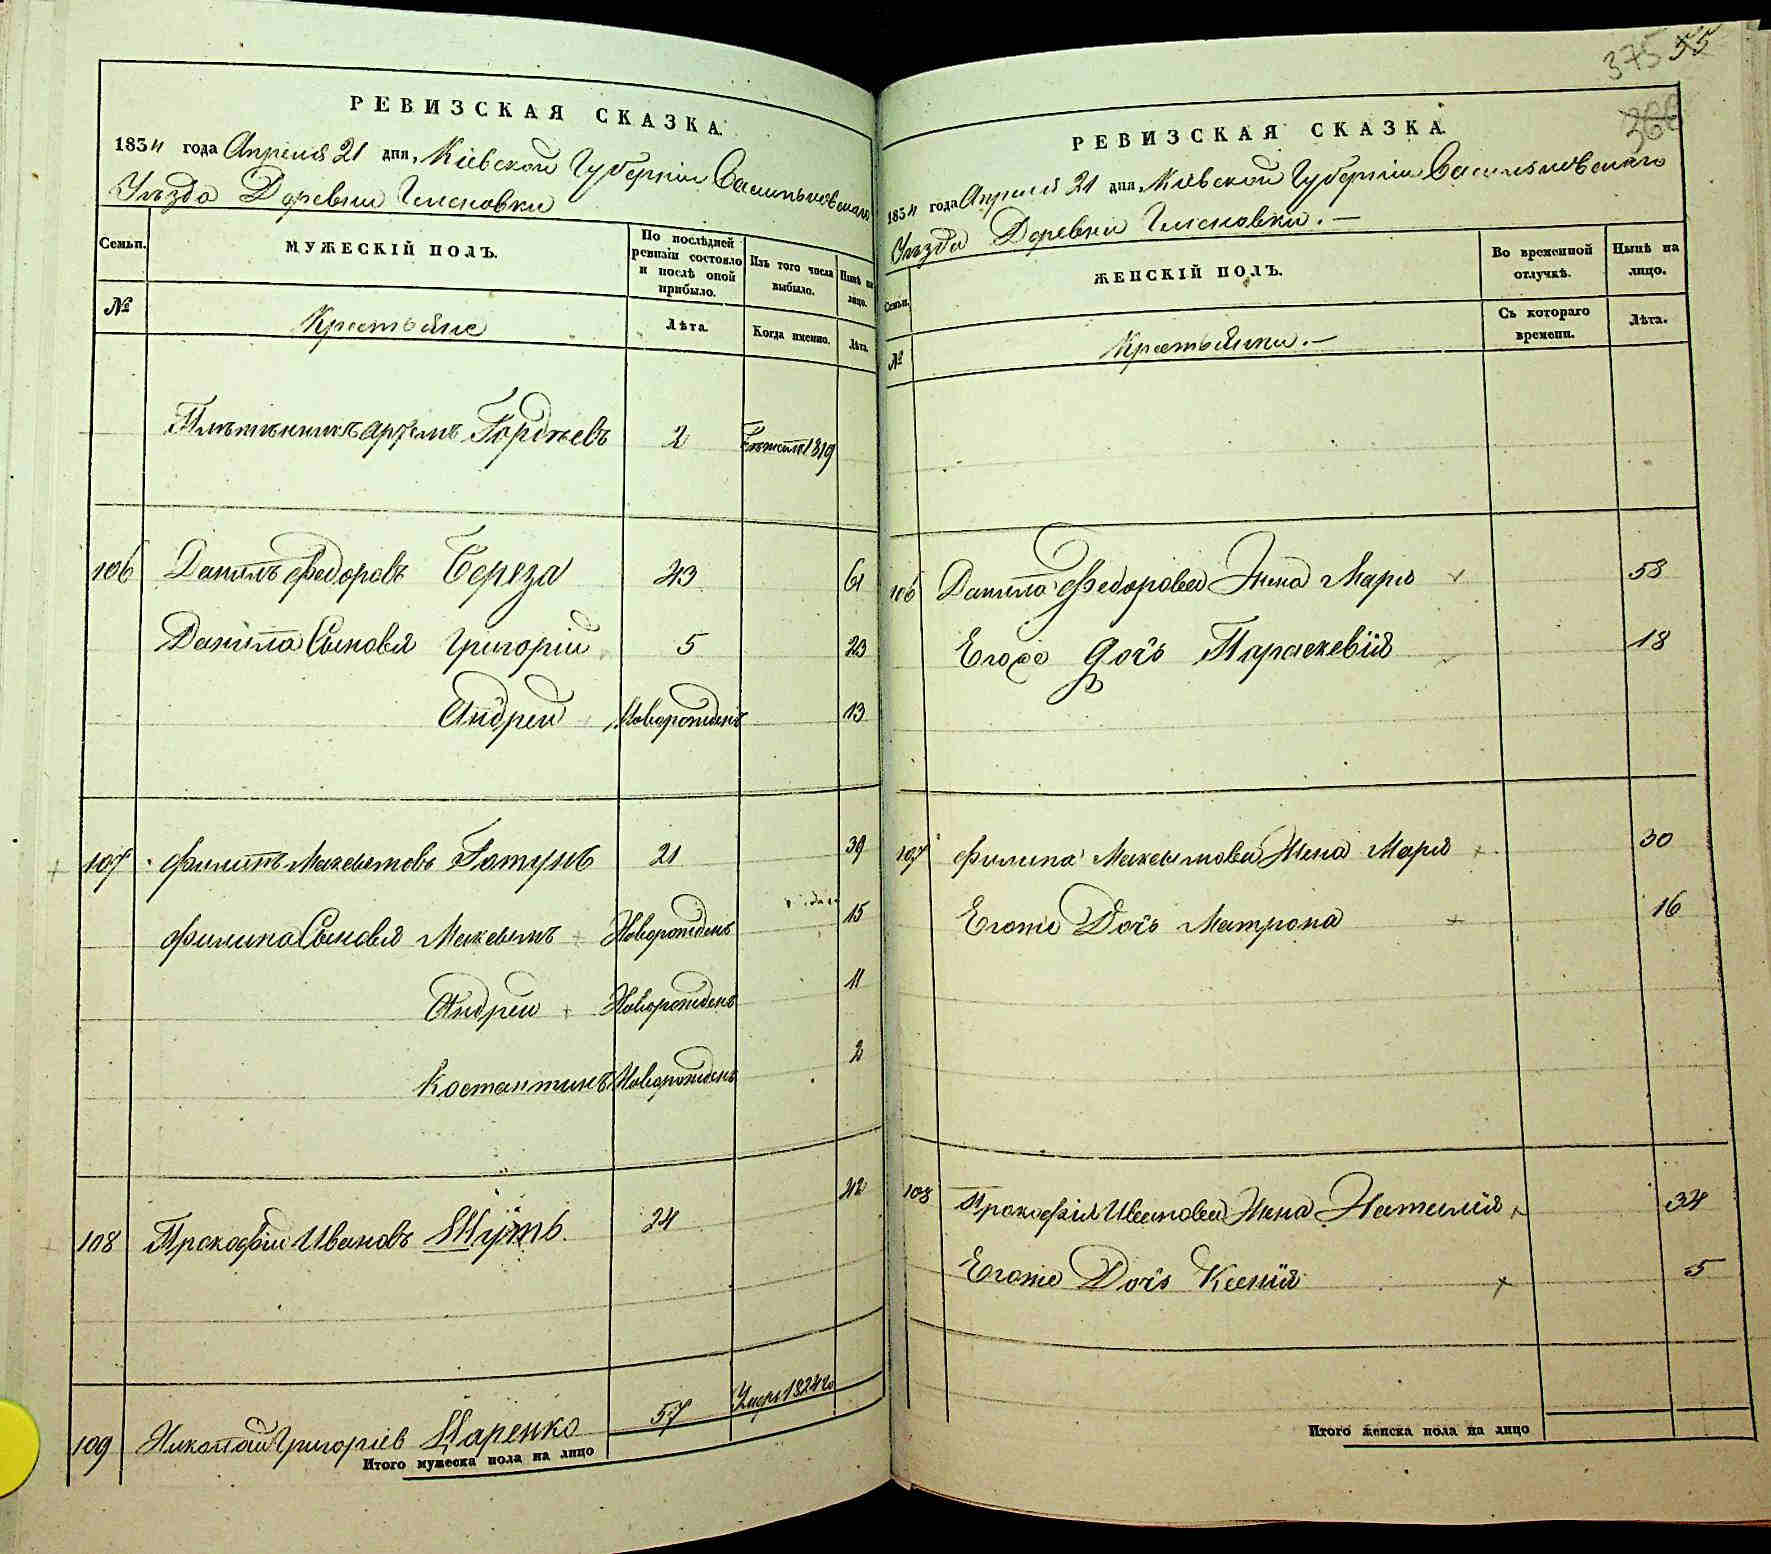 РЕВИЗСКАЯ СКАЗКА.
1834 года Апреля 21 дня, Кіевской Губерніи Васильковскаго
Уѣзда Деревни
Семьи.
МУЖЕСКІЙ ПОЛЪ.
По послѣдней ревизіи состояло и послѣ оной прибыло.
Изъ того числа выбыло.
Нынѣ на лицо.
№
Крестьяне
Лѣта.
Когда именно.
Лѣта.
Племянникъ Артемъ Гордѣевъ 2 1819
106 Данилъ Федоровъ Береза 43 61
Данила Сыновья Григорій 5 23
Андрей Новорожденъ 13
107 Филипъ Максымовъ Гатунъ 21 39
Филипа Сыновья Максымъ Новорожденъ 15
Андрей Новорожденъ 11
Костантинъ Новорожденъ 2
108 Прокофій Ивановъ Шутъ 24 42
109 Николай Григоріев Царенко 57 Умеръ 1824го
Итого мужеска пола на лицо
375 55
366
РЕВИЗСКАЯ СКАЗКА
1834 года Апреля 21 дня, Кіевской Губерніи Васильковскаго
Уѣзда Деревни
Семьи.
ЖЕНСКІЙ ПОЛЪ.
Во временной отлучкѣ.
Нынѣ на лицо.
№
Крестьянки.
Съ котораго времени.
Лѣта.
106 Данила Федорова Жена Марія 58
Егоже Дочь Параскевія 18
107 Филипа Максымова Жена Марія 30
Егоже Дочь Матрона 16
108 Прокофія Иванова Жена Наталія 34
Егоже Дочь Ксенія 5
Итого женска пола на лицо